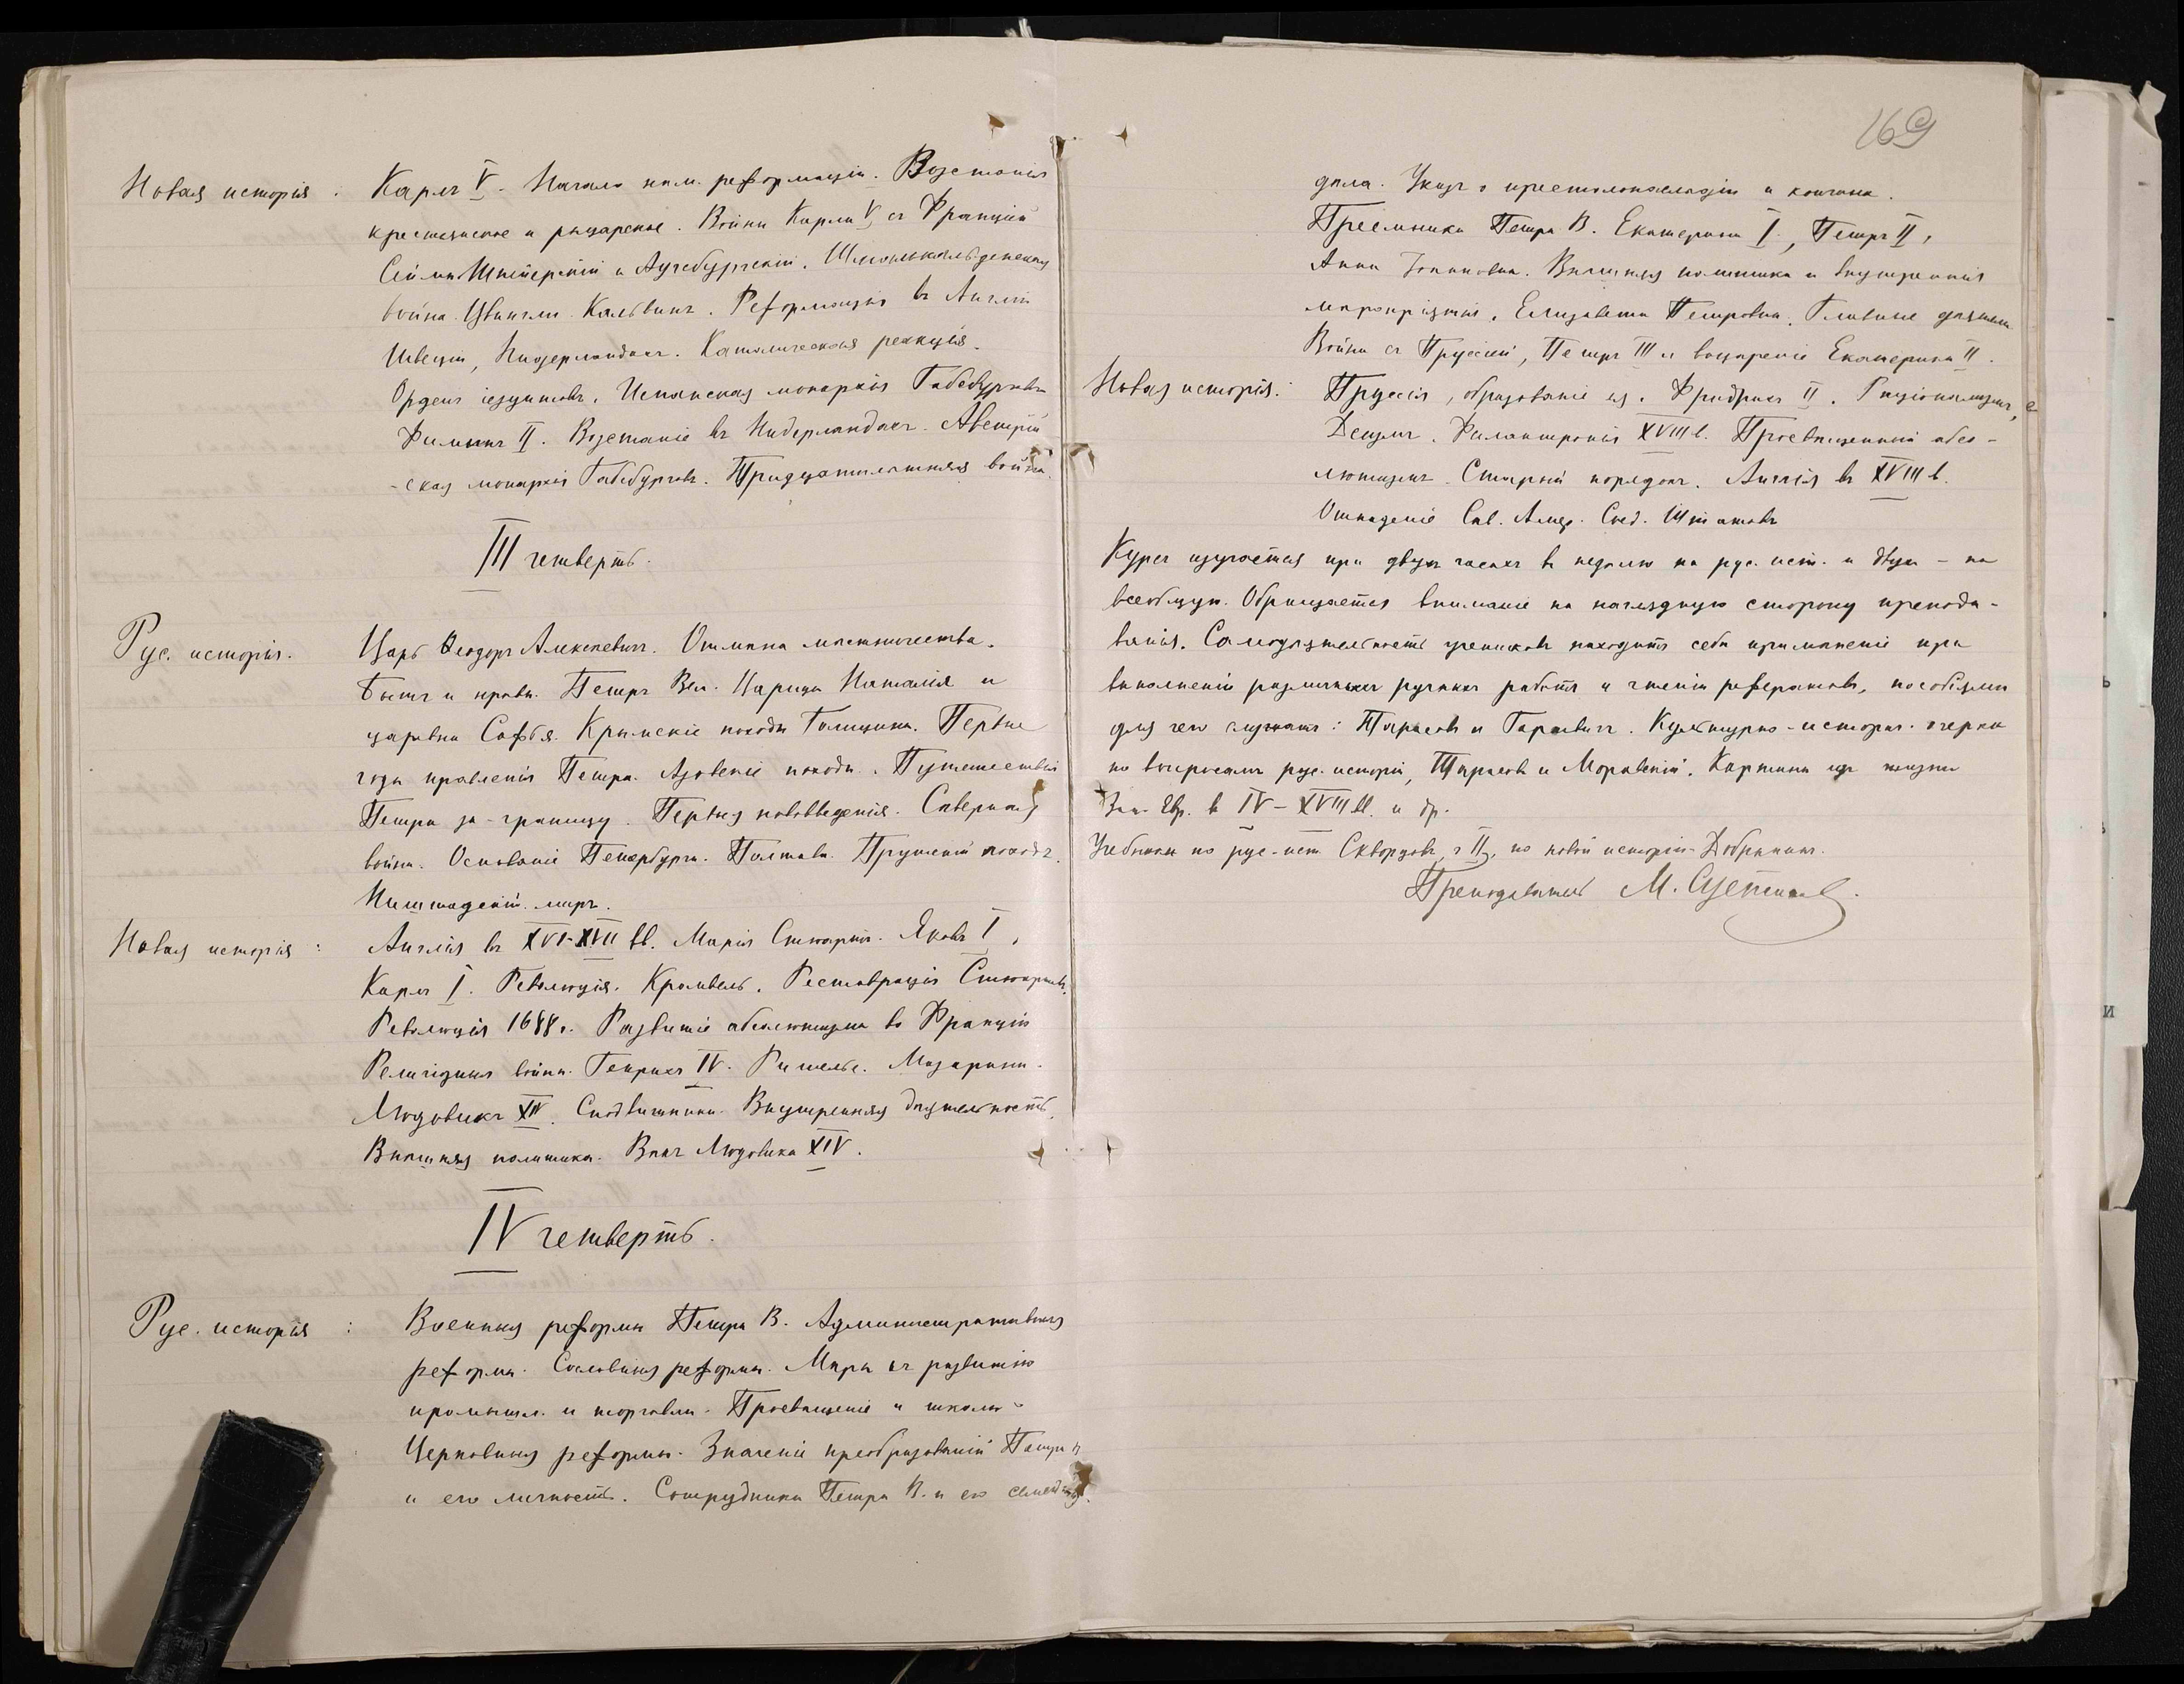 Новая исторія : Карлъ V. Начало нѣм. реформаціи. Возстанія
крестьянское и рыцарское. Войны Карла V съ Франціей
Сеймы Шпейерскій и Аугсбургскій. Шмалькальденская
война. Цвингли. Кальвинъ. Реформація въ Англіи
Швеціи, Нидерландахъ. Католическая реакція.
Орденъ іезуитовъ. Испанская монархія Габсбурговъ
Филиппъ II. Возстаніе въ Нидерландахъ. Австрій
-ская монархія Габсбурговъ. Тридцатилѣтняя война.
III четверть.
Рус. исторія. Царь Ѳеодоръ Алексѣевичъ. Отмѣна мѣстничества.
Бытъ и нравы. Петръ Вел. Царица Наталія и
царевна Софья. Крымскіе походы Голицына. Первые
годы правленія Петра. Азовскіе походы. Путешествія
Петра за-границу. Первыя нововведенія. Сѣверная
война. Основаніе Петербурга. Полтава. Прутскій походъ.
Ништадскій миръ.
Новая исторія : Англія въ XVI-XVII вв. Марія Стюартъ. Яковъ I,
Карлъ I. Революція. Кромвель. Реставрація Стюартовъ.
Революція 1688 г. Развитіе абсолютизма во Франціи
Религіозныя войны. Генрихъ IV. Ришелье. Мазарини.
Людовикъ XIV. Сподвижники. Внутренняя дѣятельность.
Внѣшняя политика. Вѣкъ Людовика XIV.
IV четверть.
Рус. исторія : Военныя реформы Петра В. Административныя
реформы. Сословныя реформы. Мѣры къ развитію
промышл. и торговли. Просвѣщеніе и школы
Церковныя реформы. Значеніе преобразованій Петра В
и его личность. Сотрудники Петра В. и его
169
дѣла. Указъ о престолонаслѣдіи и кончина.
Преемники Петра В. Екатерина I, Петръ II,
Анна Іоанновна. Внѣшняя политика и внутреннія
мѣропріятія. Елизавета Петровна. Главные дѣятели
Война съ Пруссіей, Петръ III и воцареніе Екатерины II.
Новая исторія: Пруссія, образованіе ея. Фридрихъ II. Раціонализмъ,
Деизмъ. Филантропія XVIII в. Просвѣщенный абсо-
лютизмъ. Старый порядокъ. Англія въ XVIII в.
Отпаденіе Сѣв. Амер. Соед. Штатовъ
Курсъ изучается при двухъ часахъ въ недѣлю на рус. ист. и двухъ - на
всеобщую. Обращается вниманіе на наглядную сторону препода-
ванія. Самодѣятельность учениковъ находитъ себѣ примѣненіе при
выполненіи различныхъ ручныхъ работъ и чтеніи рефератовъ, пособіями
для чего служатъ: Тарасовъ и Гартвигъ. Культурно-историч. очерки
по вопросамъ рус. исторіи, Тарасовъ и Моравскій. Картины изъ жизни
Зап. Евр. въ IV-XVIII вв. и др.
Учебники по рус. ист. Скворцовъ, ч II, по новой исторіи - Добрынинъ.
Преподаватель М.